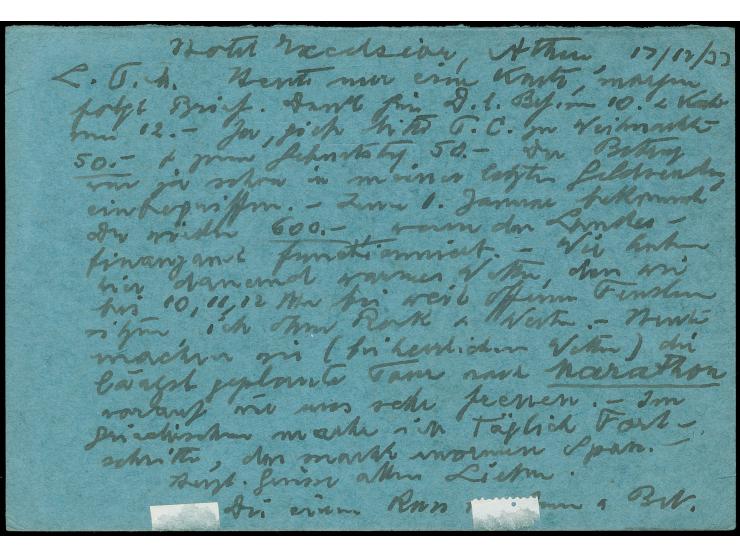 Hotel Excelsior, Athen, 17/12/33
L. T. H. Heute nur eine Karte, morgen
folgt Brief. Dank für D. l. Bf. vom 10. & Karte
vom 12.- Ja, gieb bitte T. C. zu Weihnachten
50.- & zum Geburtstag 50.- Der Betrag
war ja schon in meiner letzten Geldsendung
einbegriffen. - Zum 1. Januar bekommst
Du wieder 600.-, wenn das Landes-
finanzamt functionniert. - Wir haben
hier dauernd warmes Wetter, so dass wir
bis 10, 11, 12 Uhr bei weit offenen Fenstern
sitzen ich ohne Rock & Weste. - Heute
machen wir (bei herrlichem Wetter) die
längst geplante Tour nach Marathon
worauf wir uns sehr freuen. - Im
Griechischen mache ich täglich Fort-
schritte, das macht enormen Spass. -
Herzl. Grüsse allen Lieben.
Dir einen Kuss